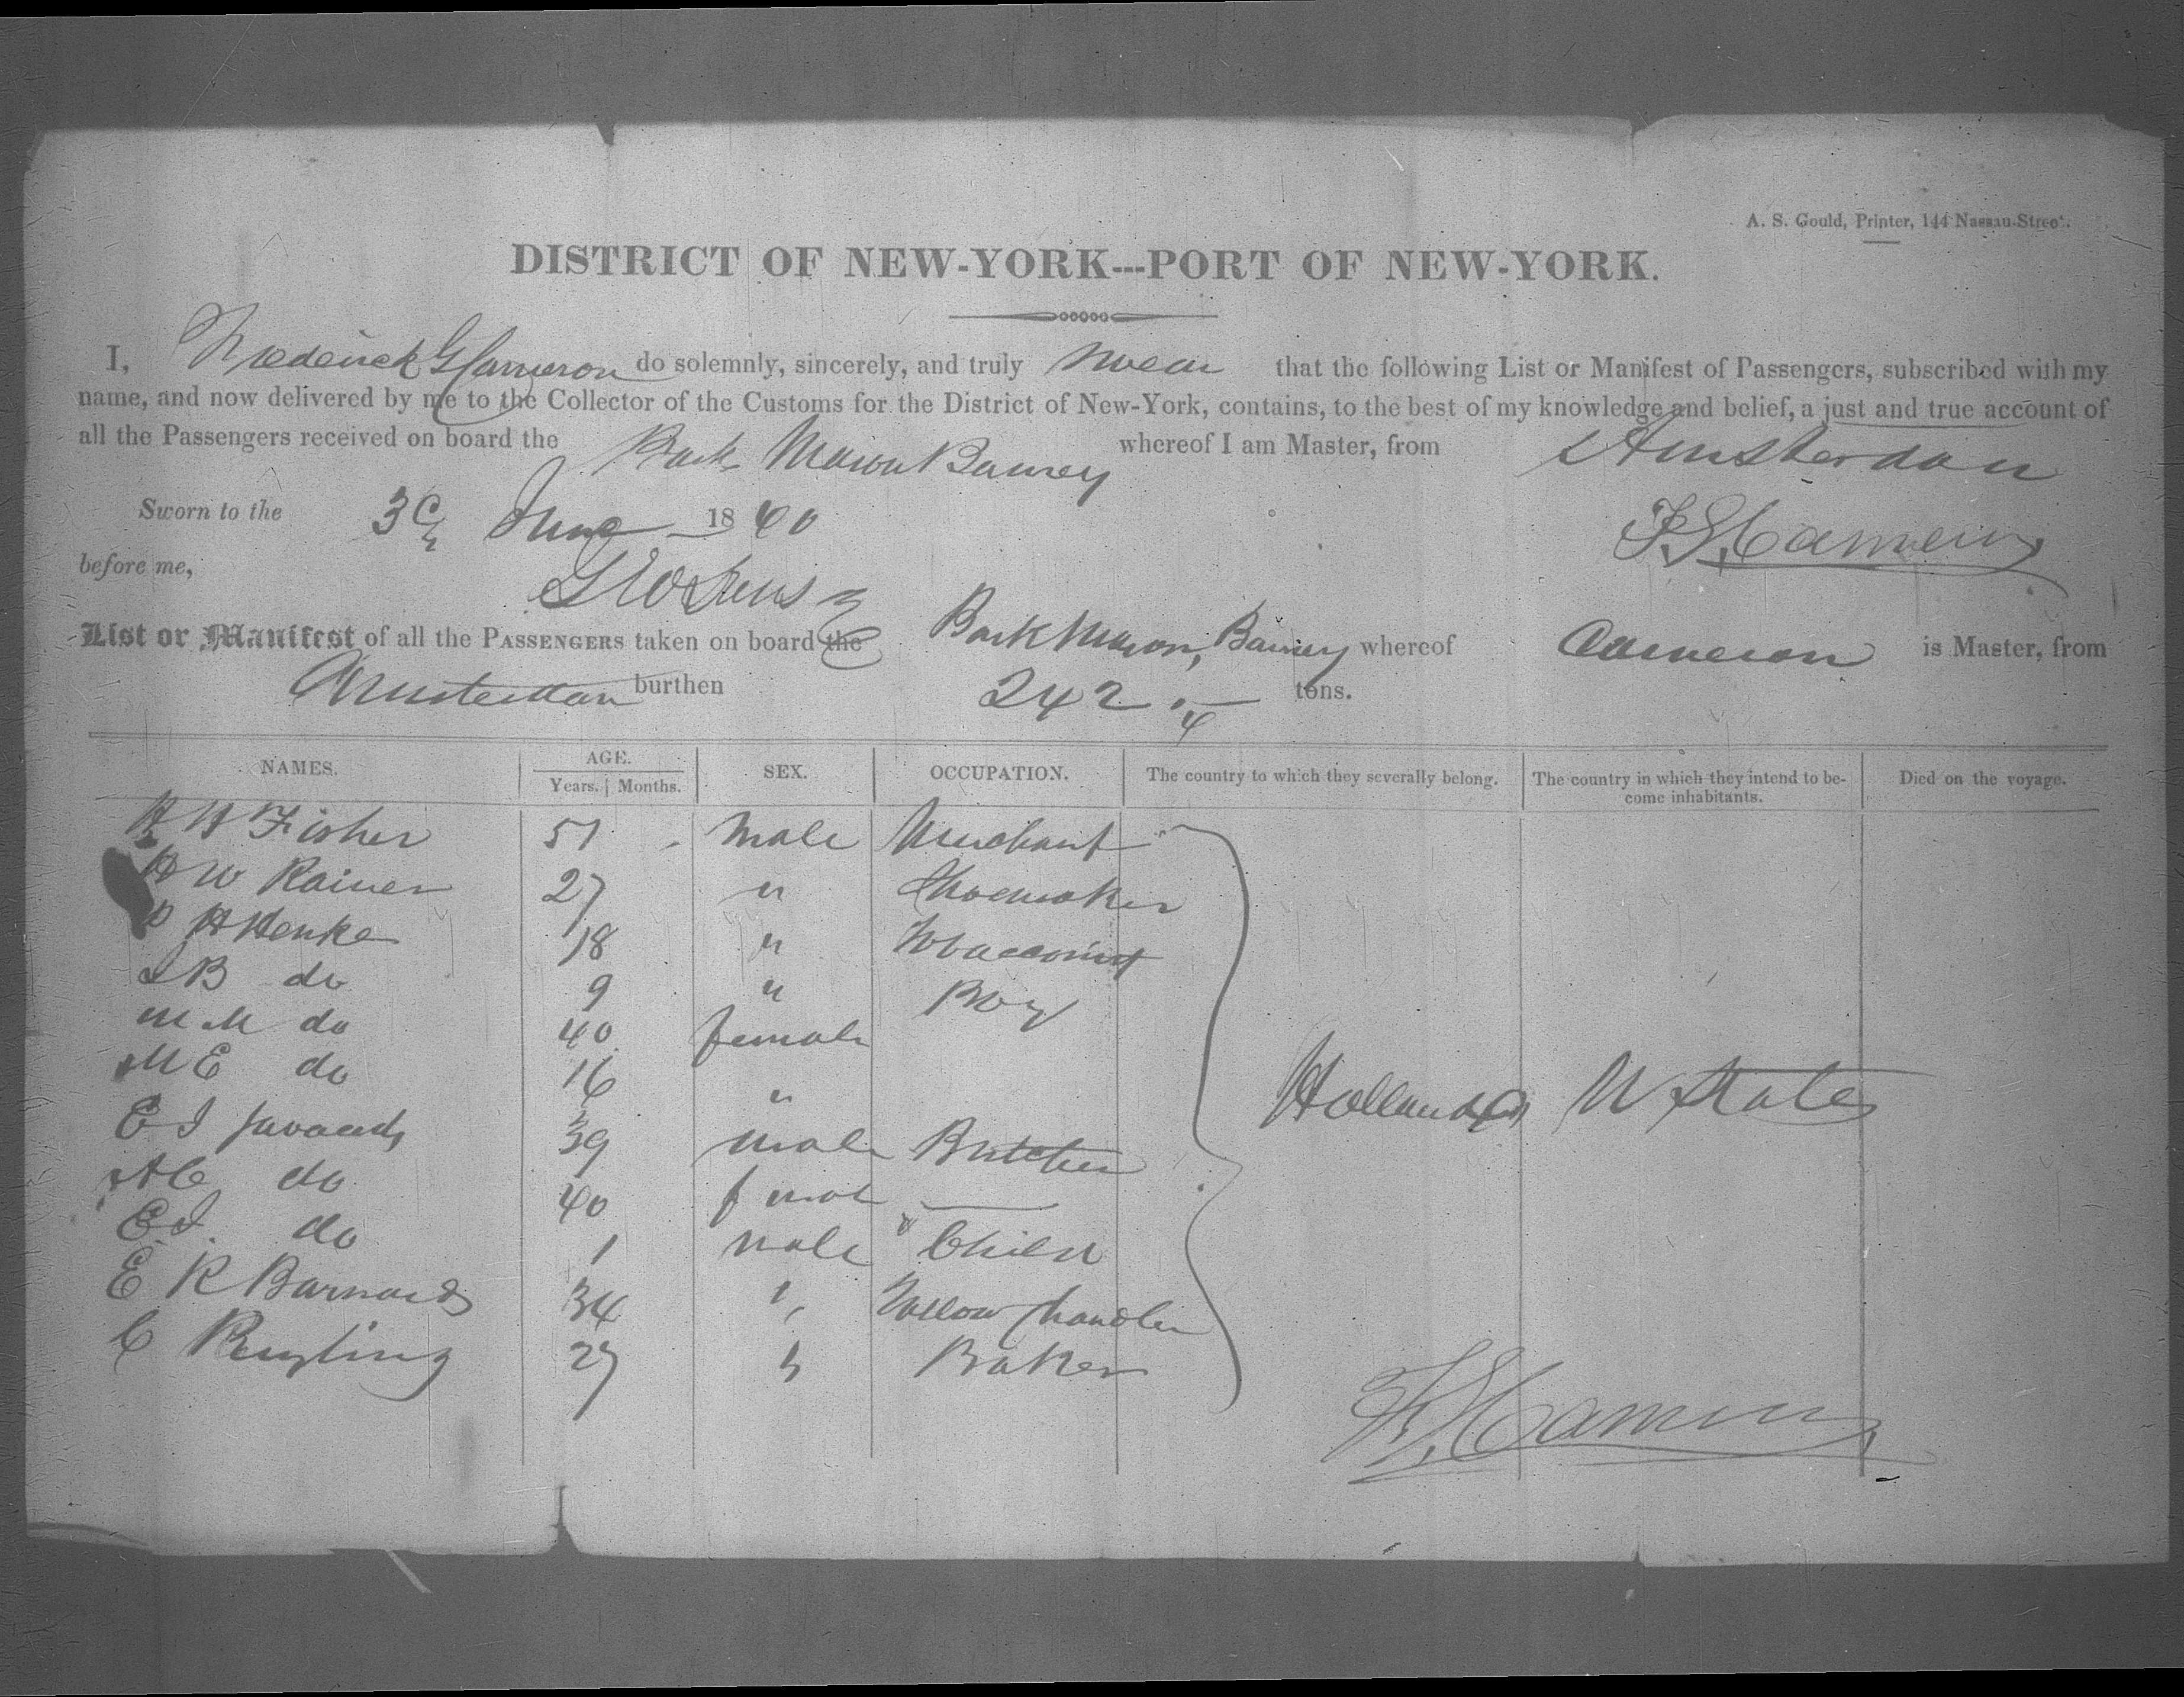 A. S. Gould, Printer, 144 Nassau-Street.
DISTRICT OF NEW-YORK---PORT OF NEW-YORK.
I, Frederick G Cameron do solemnly, sincerely, and truly swear that the following List or Manifest of Passengers, subscribed with my
name, and now delivered by me to the Collector of the Customs for the District of New-York, contains, to the best of my knowledge and belief, a just and true account of
all the Passengers received on board the Bark Marion Barney whereof I am Master, from Amsterdam
Sworn to the 30 June 1840
F. G. Cameron
before me,
List or Manifest of all the PASSENGERS taken on board the Bark Marion, Barney whereof Cameron is Master, from
Amsterdam burthen 242 tons.
NAMES. AGE. SEX. OCCUPATION. The country to which they severally belong. The country in which they intend to be- Died on the voyage.
Years. Months. come inhabitants.
H Fisher 51 Male Merchant
W Rainer 27 " Shoemaker
H Henke 18 " Tobacconist
B do 9 " Boy
M M do 40 female
M E do 16 "
E I 39 male Butcher
A C do 40 f mal
E. I. do 1 male Child
E R Barnards 34 " Tallow Chandler
C Ruyling 27 " Baker
Holland U States
F. G. Cameron